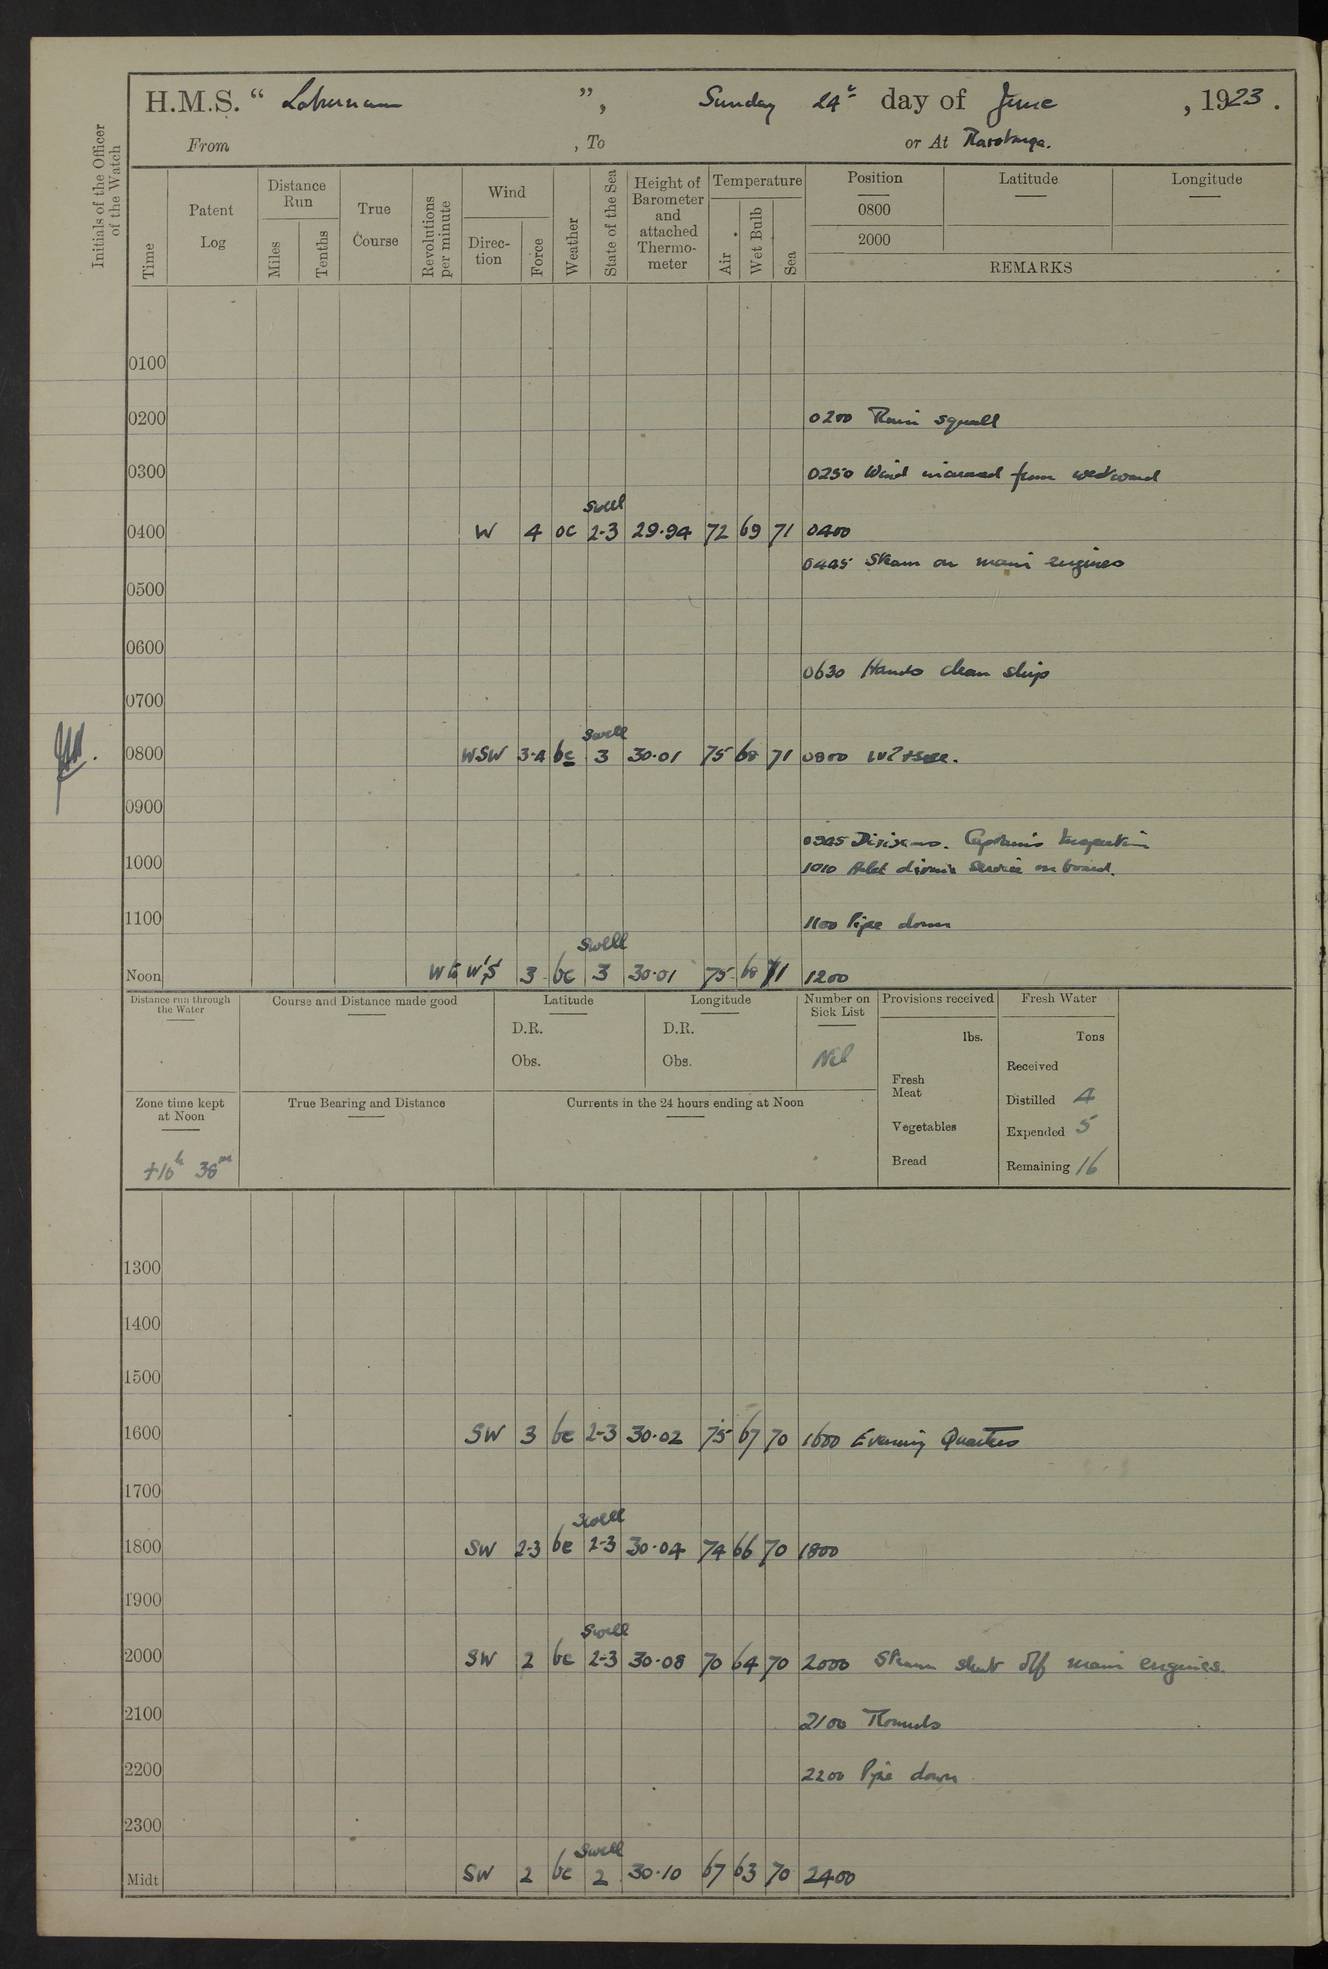 H.M.S. “ Laburnum ”, Sunday 24th day of June , 1923 .
From , To or At Rarotonga.
Initials of the Officer of the Watch
Time
Patent Log
Distance Run
Miles
Tenths
True Course
Revolutions per minute
Wind
Direc-tion
Force
Weather
State of the Sea
Height of Barometer and attached Thermo-meter
Temperature
Air
Wet Bulb
Sea
Position
0800
2000
Latitude
Longitude
REMARKS
0100
0200 0200 Rain squall
0300 0250 Wind increased from westward
swell
0400 W 4 oc 2-3 29.94 72 69 71 0400
0445 Steam on main engines
0500
0600
0630 Hands clean ship
0700
swell
0800 WSW 3-4 bc 3 30.01 75 68 71 0800
0900
0945 Divisions. Captain's Inspection
1000 1010 Held divine service on board.
1100 1100 Pipe down
swell
Noon W to W'S 3 bc 3 30.01 75 68 71 1200
Distance run through the Water
Course and Distance made good
Latitude
D.R.
Obs.
Longitude
D.R.
Obs.
Number on Sick List
Nil
Provisions received
lbs.
Fresh Meat
Vegetables
Bread
Fresh Water
Tons
Received
Distilled 4
Expended 5
Remaining 16
Zone time kept at Noon
+10h 38m
True Bearing and Distance
Currents in the 24 hours ending at Noon
1300
1400
1500
1600 SW 3 bc 2-3 30.02 75 67 70 1600 Evening Quarters
1700
swell
1800 SW 2-3 bc 2-3 30.04 74 66 70 1800
1900
swell
2000 SW 2 bc 2-3 30.08 70 64 70 2000 Steam shut off main engines.
2100 2100 Rounds
2200 2200 Pipe down
2300
swell
Midt SW 2 bc 2 30.10 67 63 70 2400